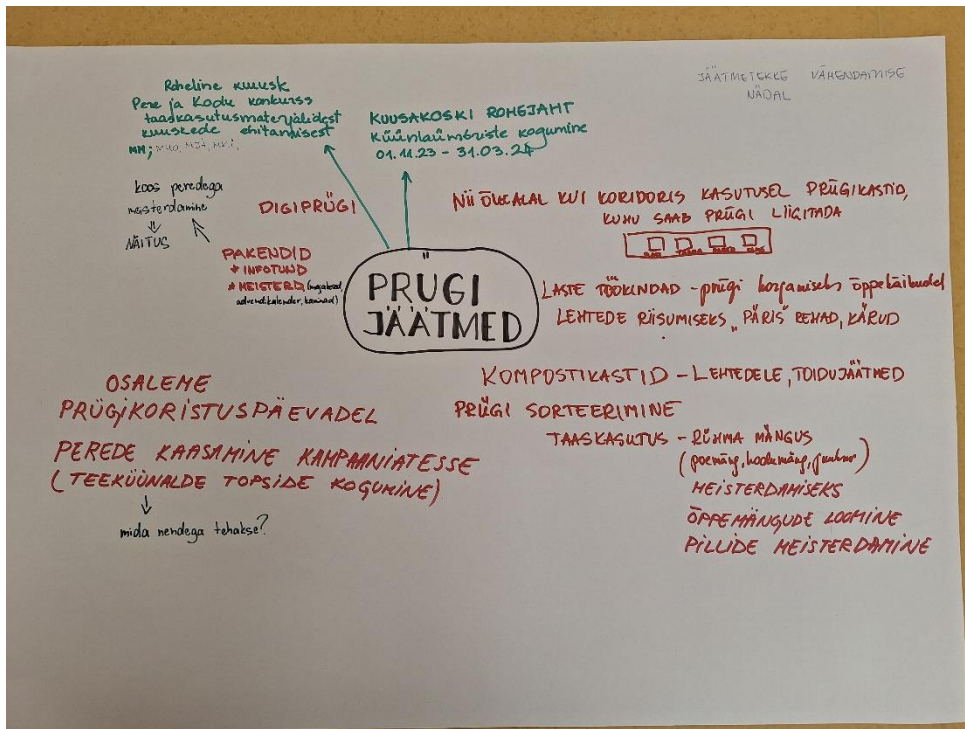 JÄÄTMETEKKE VÄHENDAMISE
NÄDAL
Roheline kuusk
Pere ja Kodu konkurss
taaskasutusmaterjalidest
kuuskede ehitamisest
MM;
KUUSAKOSKI ROHEJAHT
Küünlaümbriste kogumine
01.11.23 - 31.03.24
koos peredega
meisterdamine
NÄITUS
DIGIPRÜGI
PAKENDID
* INFOTUND
* MEISTERD
advendikalender, kaminad)
PRÜGI
JÄÄTMED
NII ÕUEALAL KUI KORIDORIS KASUTUSEL PRÜGIKASTID,
KUHU SAAB PRÜGI LIIGITADA
LASTE TÖÖKINDAD - prügi korjamiseks õppekäikudel
LEHTEDE RIISUMISEKS "PÄRIS" REHAD, KÄRUD
KOMPOSTIKASTID - LEHTEDELE, TOIDUJÄÄTMED
PRÜGI SORTEERIMINE
TAASKASUTUS - RÜHMA MÄNGUS
(poemäng, kodumäng,
MEISTERDAMISEKS
ÕPPEMÄNGUDE LOOMINE
PILLIDE MEISTERDAMINE
OSALEME
PRÜGIKORISTUSPÄEVADEL
PEREDE KAASAMINE KAMPAANIATESSE
(TEEKÜÜNALDE TOPSIDE KOGUMINE)
mida nendega tehakse?